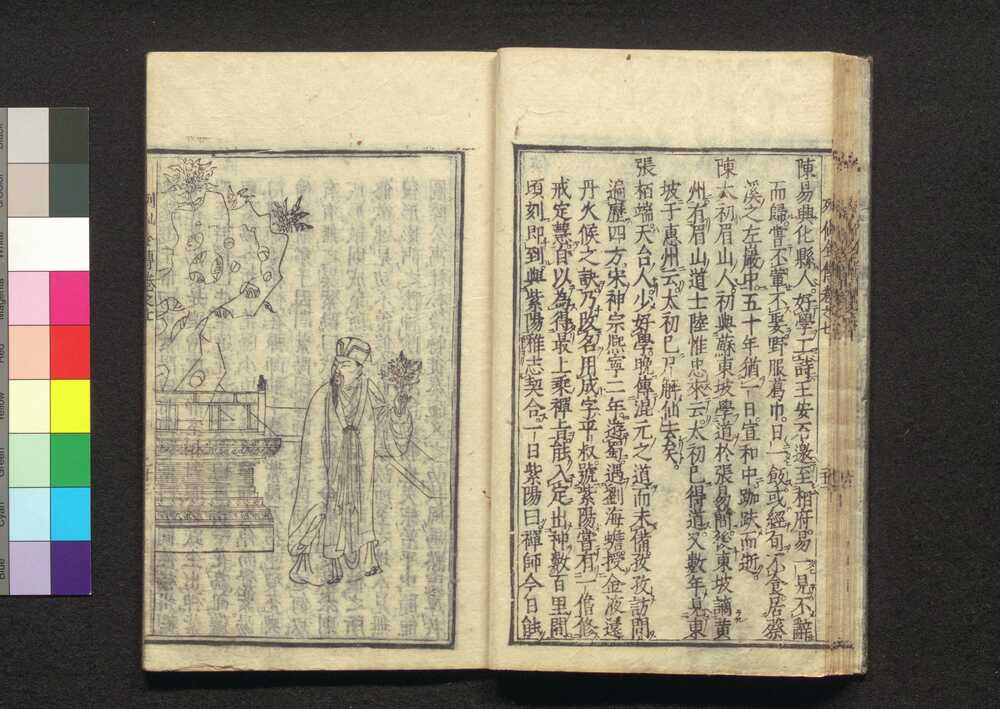 陳易興化縣人好學工詩王安石邀至相府易一見不辭
而歸嘗不葷不娶野服葛巾日一飯或經旬不食居蔡
溪之左巖中五十年猶一日宣和中趺而逝
陳太初眉山人初與蘇東坡學道於張易簡後東坡謫黃
州有眉山道士陸惟忠來云太初已得道又數年見東
坡于惠州云太初已尸解仙去矣
張栢端天台人少好學晚傳混元之道而未備孜孜訪問
遍歷四方宋神宗熙寧二年遊蜀遇劉海蟾授金液還
丹火候之訣乃改名用成字平叔號紫陽嘗有一僧修
戒定慧自以為得最上乘禪旨能入定出神數百里間
頃刻即到與紫陽雅志契合一日紫陽曰禪師今日能